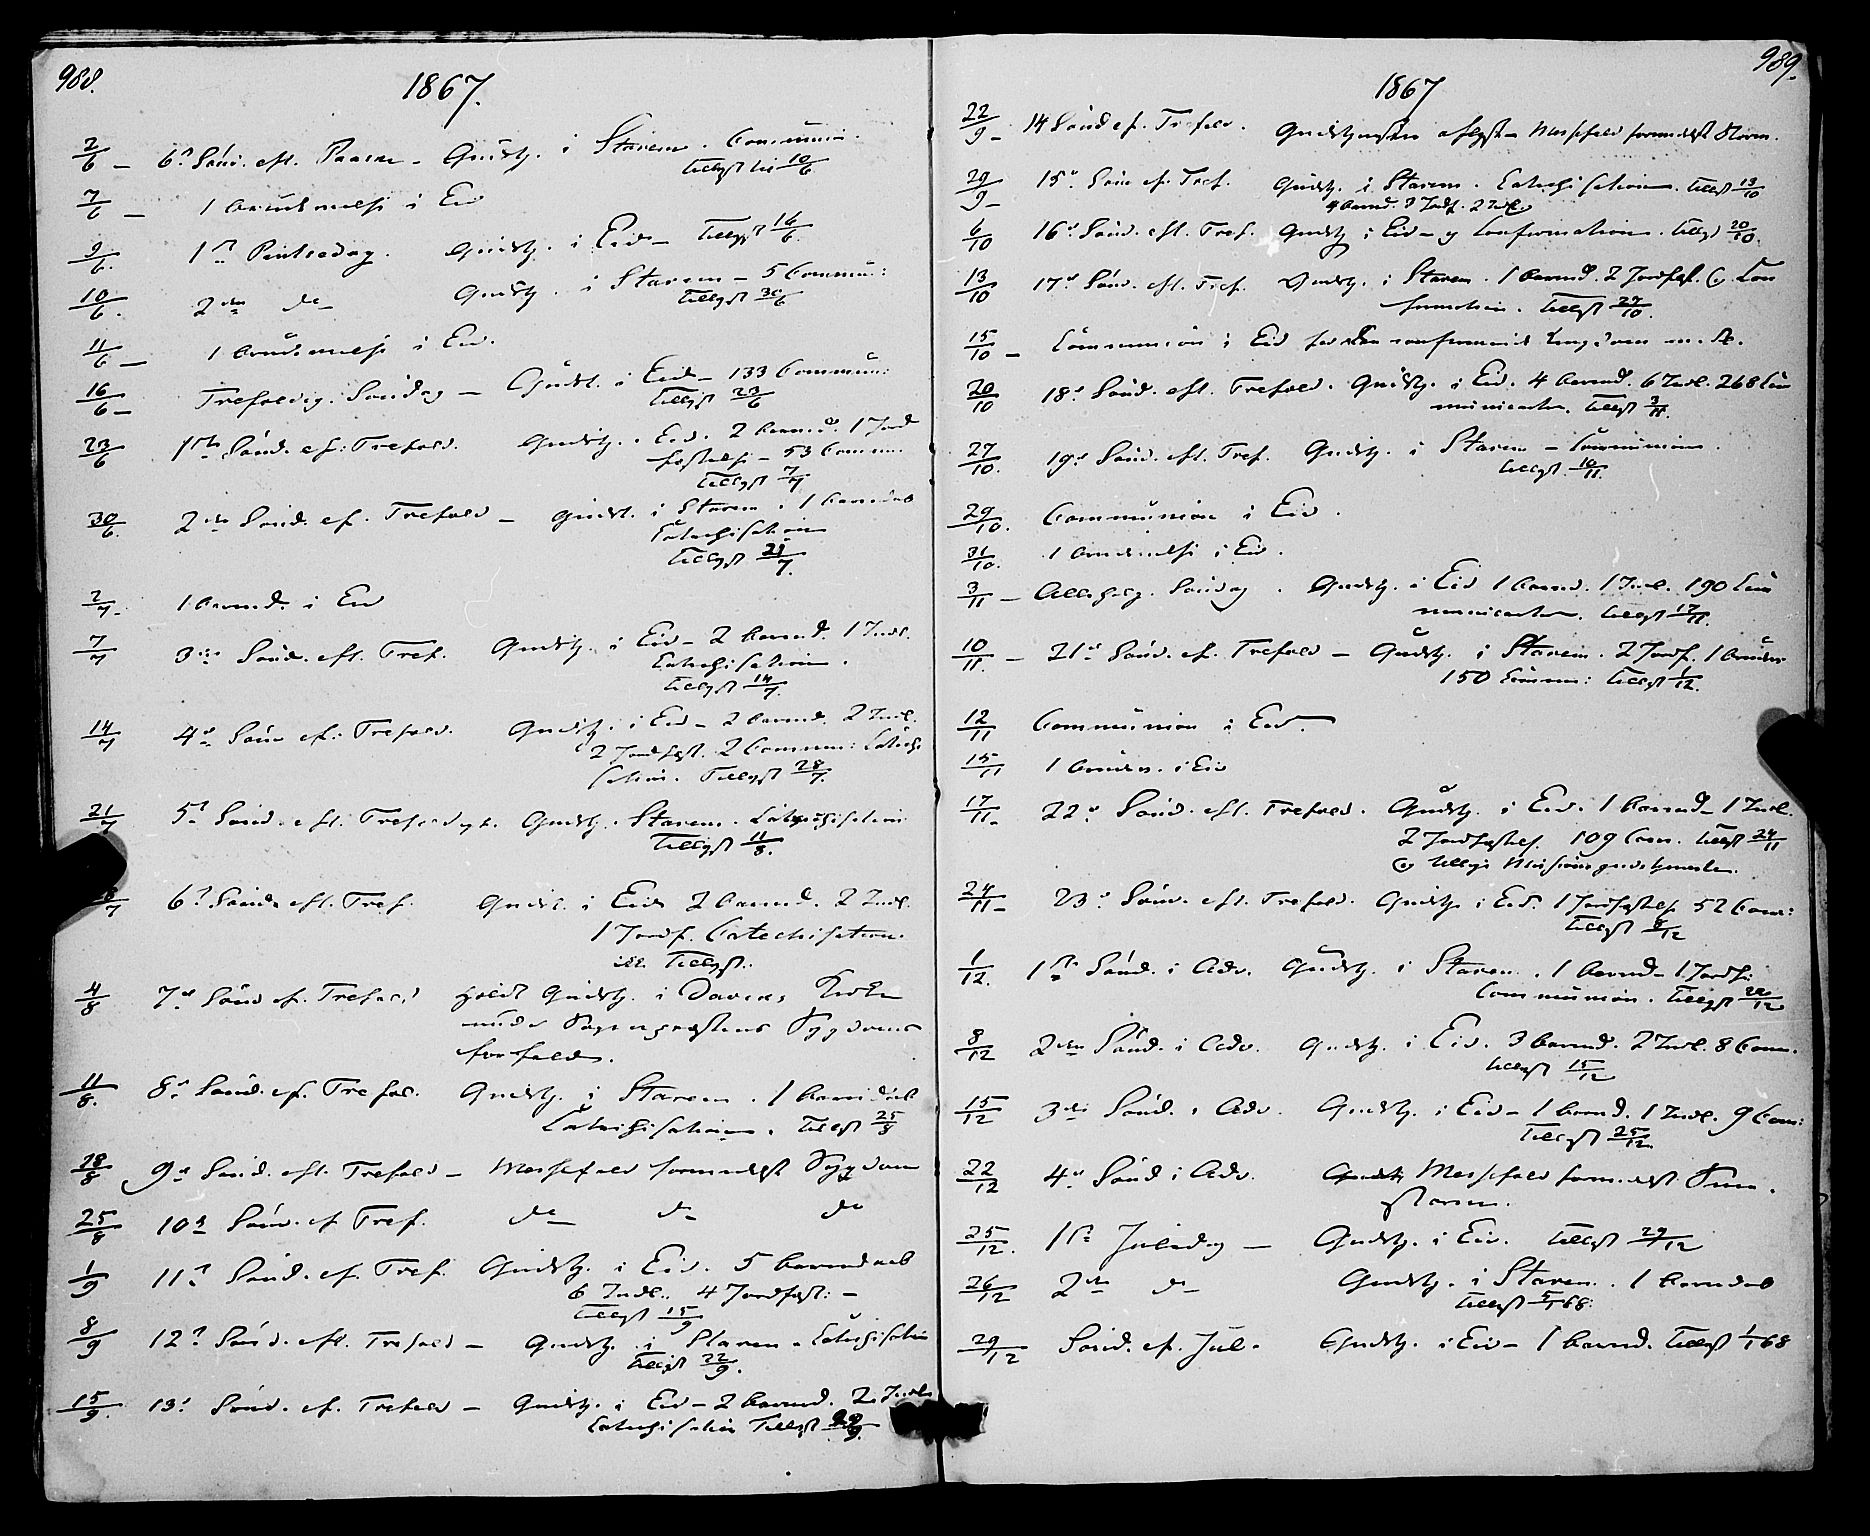 988.
1867.
2/6 - 6te Sønd. eft. Paaske - Gudstj. i Starem. Communion.
tillyst til 10/6
7/6 - 1 i Eid
9/6. 1ste Pintsedag. Gudstj. i Eid - Tillyst 16/6.
10/6. 2den do Gudstj. i Starem - 5 Commun:
tillyst 30/6
11/6 - 1 i Eid.
16/6 - Trefoldig. Søndag - Gudst. i Eid - 133 Commun:
Tillyst 23/6
23/6 1ste Sønd. ef: Trefold. Gudstj. i Eid. 2 barned. 1 Jord
fæstelse - 53 Commun.
Tillyst 7/7
30/6. 2den Sønd. ef. Trefold - Gudst. i Starem. 1 barnedaab
Catechisation
tillyst 21/7.
2/7. 1 barned. i Eid
7/7 3die Sønd. eft. Tref. Gudstj. i Eid - 2 barned. 1 Intl.
Catechisation.
tillyst 14/7.
14/7 4de Sønd ef: Trefold. Gudstj. i Eid - 2 barned. 2 Intl.
2 Jordfæst. 2 Commun: Catechi
sation. Tillyst 28/7.
21/7 5te Sønd. eft. Gudstj. Starem. Catechisation
Tillyst 11/8.
28/7 6te Sønd. eft. Tref. Gudst. i Eid 2 barned. 2 Intl.
1 Jordf. Catechisation.
Tillyst.
4/8 7de Sønd ef. Trefold holdt Gudstj. i Kirke
under Sogneprestens Sygdoms
forfald.
11/8. 8de Sønd. ef. Trefol. Gudstj. i Starem. 1 barnedaab
Catechisation. Tillyst 25/8
18/8 9de Sønd. eft. Trefold - Messefald formedelst Sygdom
25/8 10de Sønd. ef Tref. do do do
1/9 11te Sønd. ef. Tref. Gudstj. i Eid. 5 barnedaab
6 Indl. 4 Jordfæst: -
tillyst 15/9
8/9 12te Sønd. eft. Trefold - Gudstj. i Starem - Catechisation
tillyst 22/9.
15/9. 13de Sønd. ef. Trefold - Gudstj. i Eid - 2 barned. 2 Intl.
Catechisation Tillyst
989.
1867
22/9 - 14 Sønd ef. Trefold. Gudstjenesten aflyst - Messefald formedelst Storm.
29/9 - 15de Sønd ef. Tref. Gudstj. i Starem. Catechisation. tillyst 13/10
4 barned. 3 Jordf. 2 Intl.
6/10 16de Sønd. eft. Tref. Gudstj. i Eid - og Confirmation. tillyst 20/10.
13/10 17de Sønd. eft. Tref. Gudstj. i Starem. 1 barned. 2 Jordfæst. Con
firmation. tillyst 27/10.
15/10 - Communion i Eid for den confirmerede Ungdom m. fl.
20/10 18de Sønd. eft. Trefold. Gudstj. i Eid. 4 barned. 6 Intl. 268 Com
municanter. tillyst 3/11
27/10. 19de Sønd. eft. Tref. Gudstj. i Starem - Communion.
tillyst 10/11.
29/10. Communion i Eid.
31/10. 1 i Eid.
3/11 - Allehelg. Søndag. Gudstj. i Eid 1 barned. 1 Intl. 190 Com
municanter. tillyst 17/11.
10/11. - 21de Sønd. ef. Trefold - Gudstj. i Starem. 2 Jordf. 1 Brudev
150 Commun: tillyst 1/12.
12/11 Communion i Eid.
15/11 1 Brudev. i Eid
17/11. 22de Sønd. eft. Trefold. Gudstj. i Eid. 1 barned - 1 Intl.
2 Jordfæstels. 109 Com. tillyst 24/11
og tillige Missionsgudstjeneste.
24/11 - 23de Sønd. eft. Trefold. Gudstj. i Eid. 1 Jordfæstelse 52 Com:
tillyst 8/12
1/12. 1ste Sønd. i Adv. Gudstj. i Starem. 1 barned - 1 Jordf:
Communion. tillyst 22/12
8/12 2den Sønd. i Adv. Gudstj. i Eid. 3 barned. 2 Intl. 8 Com.
tillyst 15/12
15/12 3die Sønd. i Adv. Gudstj. i Eid - 1 barned. 1 Intl. 9 Com:
tillyst 25/12
22/12 4de Sønd i Adv. Gudstj Messefald formedelst Snee-
storm.
25/12. 1ste Juledag - Gudstj. i Eid. tillyst 29/12
26/12 2den do Gudstj. i Starem. 1 barnedaab
tillyst 5/1 68.
29/12 Sønd. ef. Jul. Gudstj. i Eid - 1 barned. tillyst 1/1 68